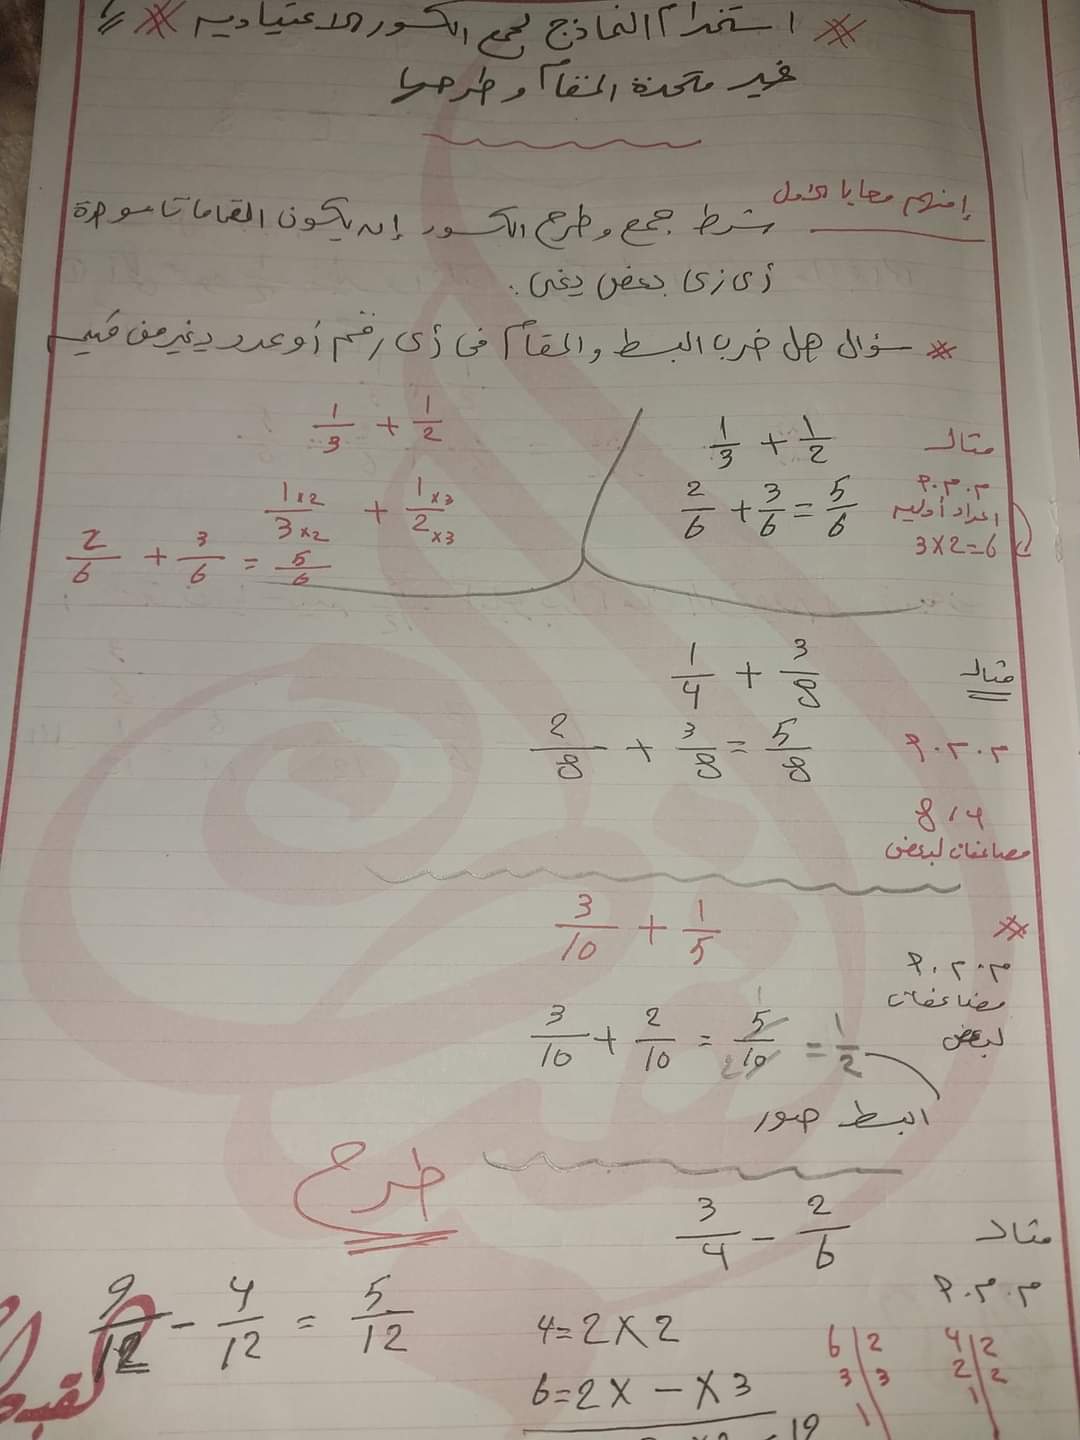 استخدام النماذج لجمع الكسور الاعتيادية
غير متحدة المقام وطرحها
إفهم معايا الأول
شرط جمع وطرح الكسور إن يكون المقامات موحدة
أى زى بعض يعنى
سؤال هل ضرب البسط والمقام فى أى رقم أو عدد يغير من قيمه
مثال
1/3 + 1/2
م.م.أ
2/6 + 3/6 = 5/6
اعداد أوليه
3x2=6
1/3 + 1/2
1x2/3x2 + 1x3/2x3
2/6 + 3/6 = 5/6
مثال
1/4 + 3/8
م.م.أ
2/8 + 3/8 = 5/8
8 ، 4
مضاعفات لبعض
3/10 + 1/5
م.م.أ
مضاعفات
لبعض
3/10 + 2/10 = 5/10 = 1/2
1
2
ابسط صور
طرح
مثال
3/4 - 2/6
م.م.أ
9/12 - 4/12 = 5/12
4=2x2
6=2x - x3
6 | 2
3 | 3
1
4 | 2
2 | 2
1